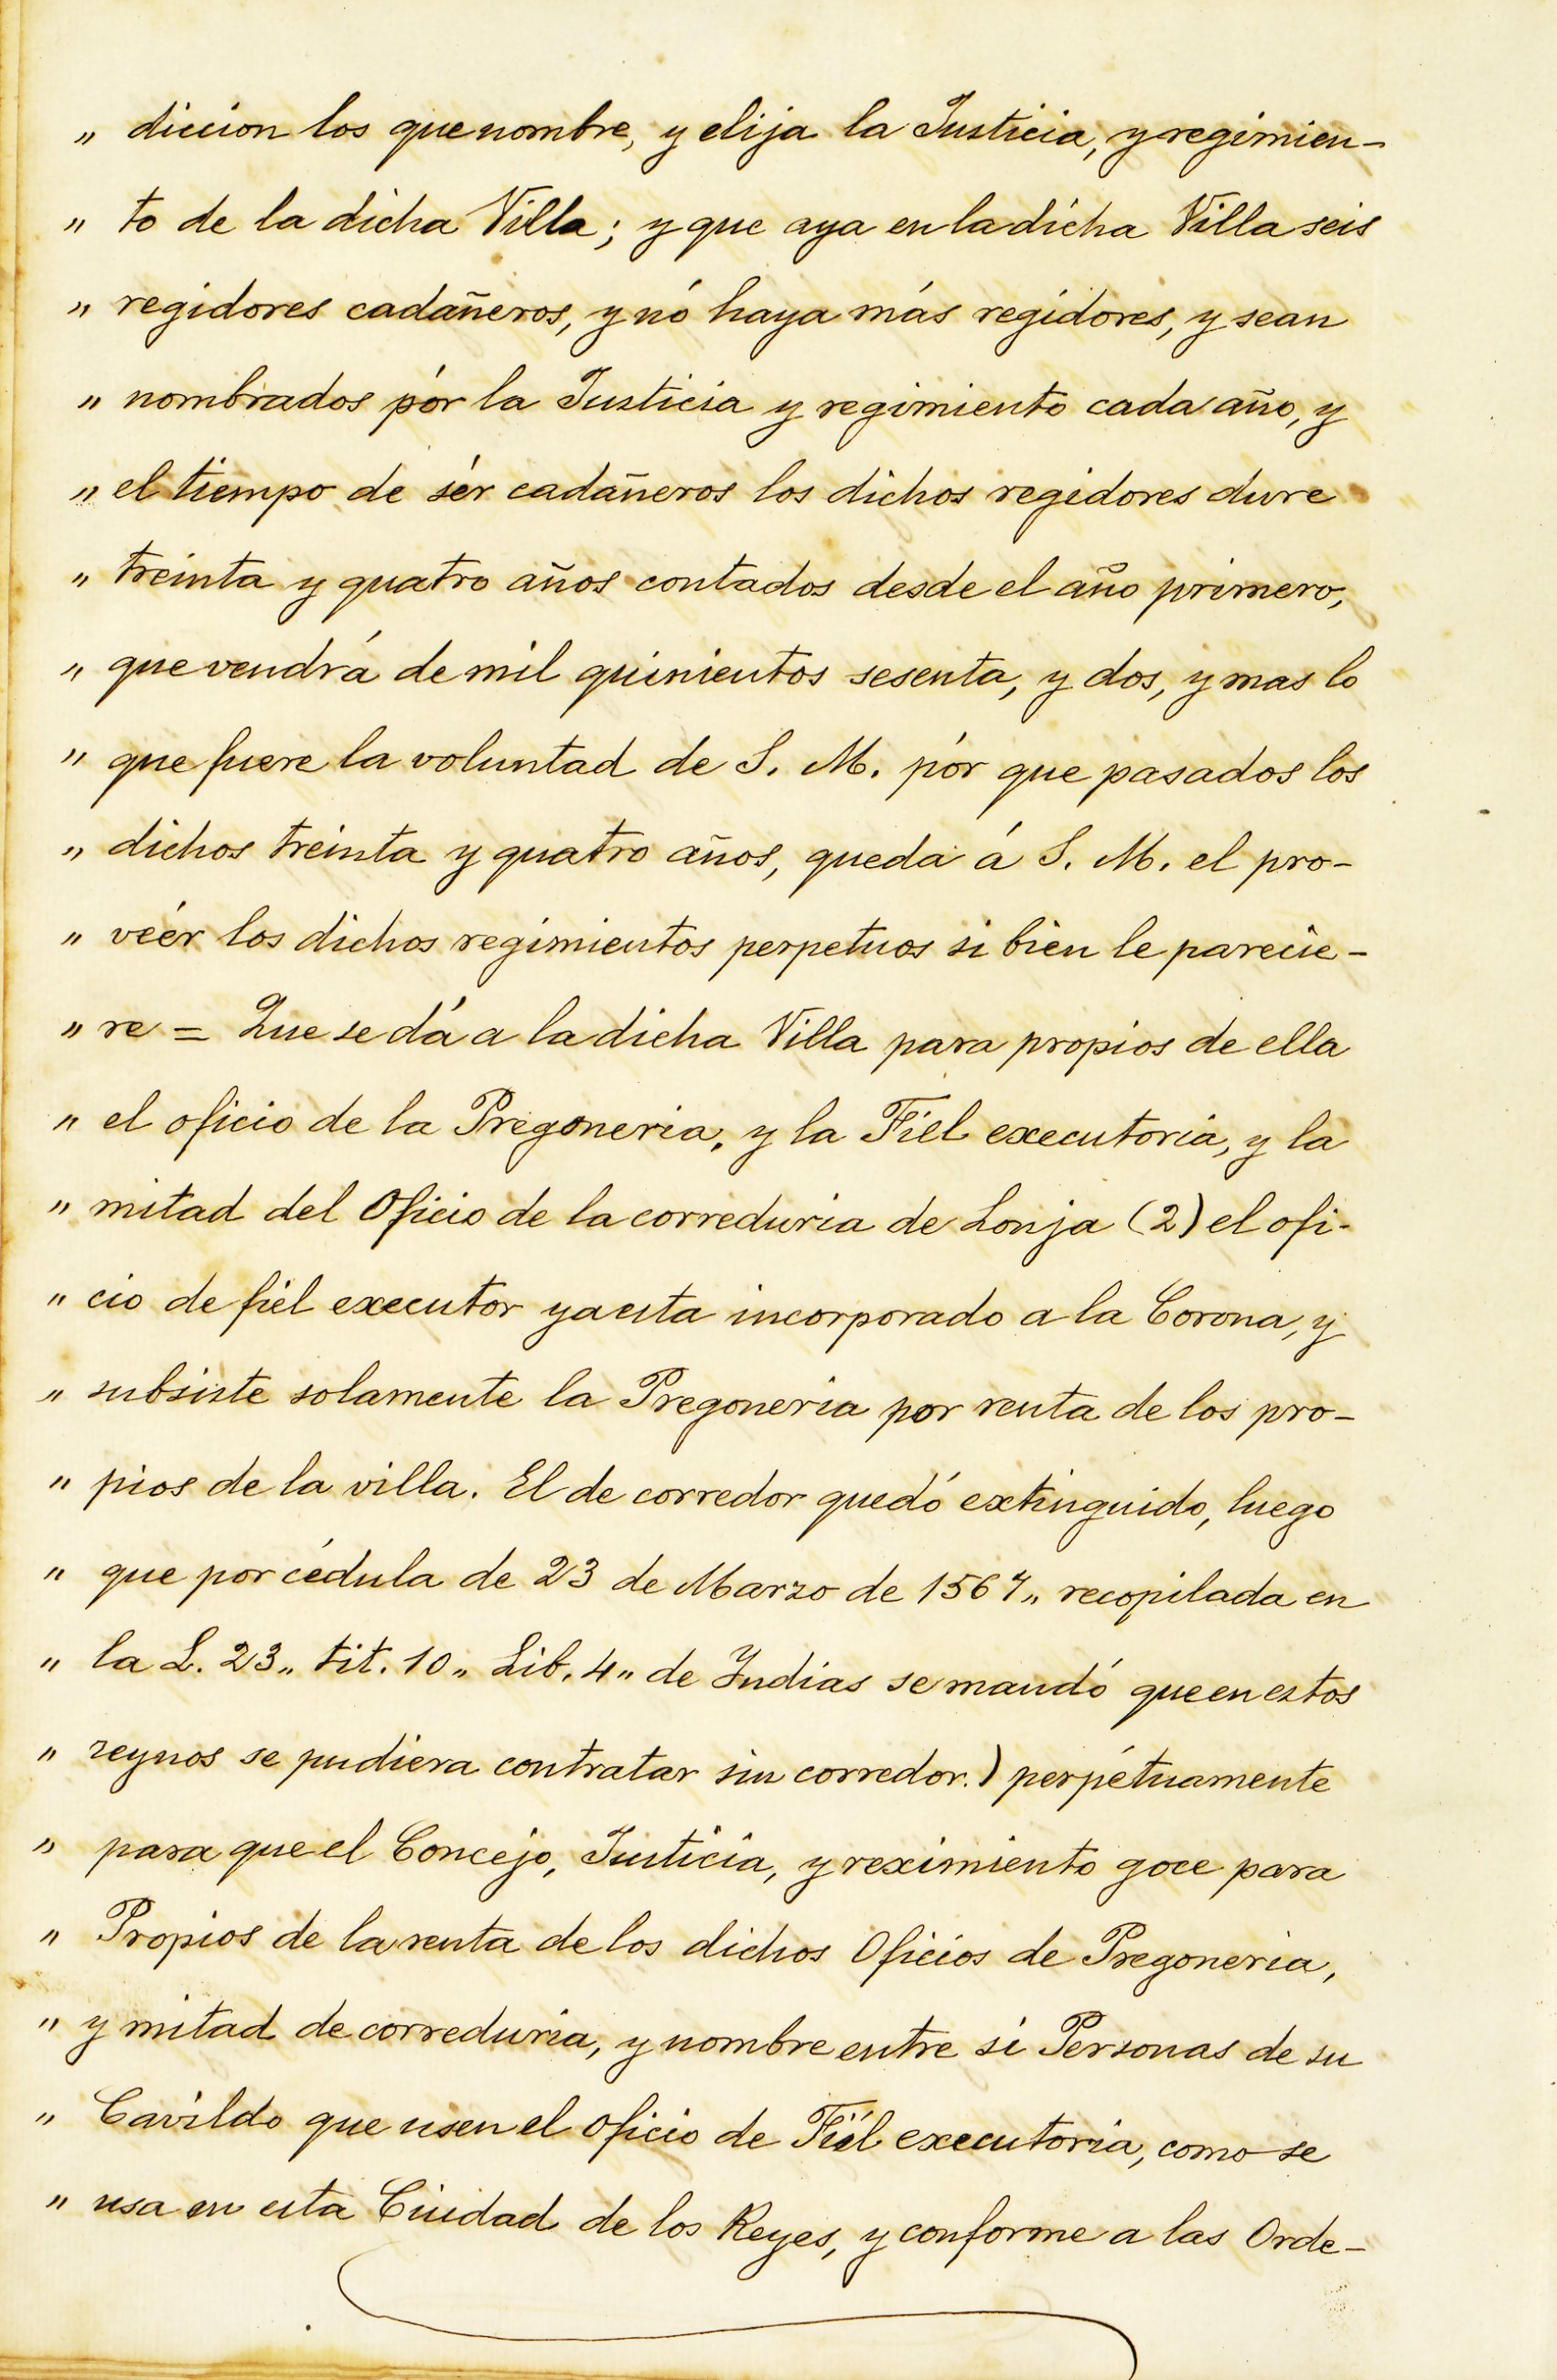 „ diccion los que nombre, y elija la Justicia, y regimien-
„ to de la dicha Villa; y que aya en la dicha Villa seis
„ regidores cadañeros, y nó haya más regidores, y sean
„ nombrados pór la Justicia y regimiento cada año, y
„ el tiempo de sér cadañeros los dichos regidores dure
„ treinta y quatro años contados desde el año primero,
„ que vendrá de mil quinientos sesenta, y dos, y mas lo
„ que fuere la voluntad de S. M. pór que pasados los
„ dichos treinta y quatro años, queda á S. M. el pro-
„ veér los dichos regimientos perpetuos si bien le parecie-
„ re = Que se dá a la dicha Villa para propios de ella
„ el oficio de la Pregoneria, y la Fiel executoria, y la
„ mitad del Oficio de la correduria de Lonja (2) el ofi-
„ cio de fiel executor ya esta incorporado a la Corona, y
„ subsiste solamente la Pregoneria por renta de los pro-
„ pios de la villa. El de corredor quedó extinguido, luego
„ que por cédula de 23 de Marzo de 1567„ recopilada en
„ la L. 23„ tit. 10„ Lib. 4„ de Indias se mandó que en estos
„ reynos se pudiera contratar sin corredor.) perpétuamente
„ para que el Concejo, Justicia, y reximiento goce para
„ Propios de la renta de los dichos Oficios de Pregoneria,
„ y mitad de correduria, y nombre entre si Personas de su
„ Cavildo que usen el oficio de Fiel executoria, como se
„ usa en esta Ciudad de los Reyes, y conforme a las Orde-